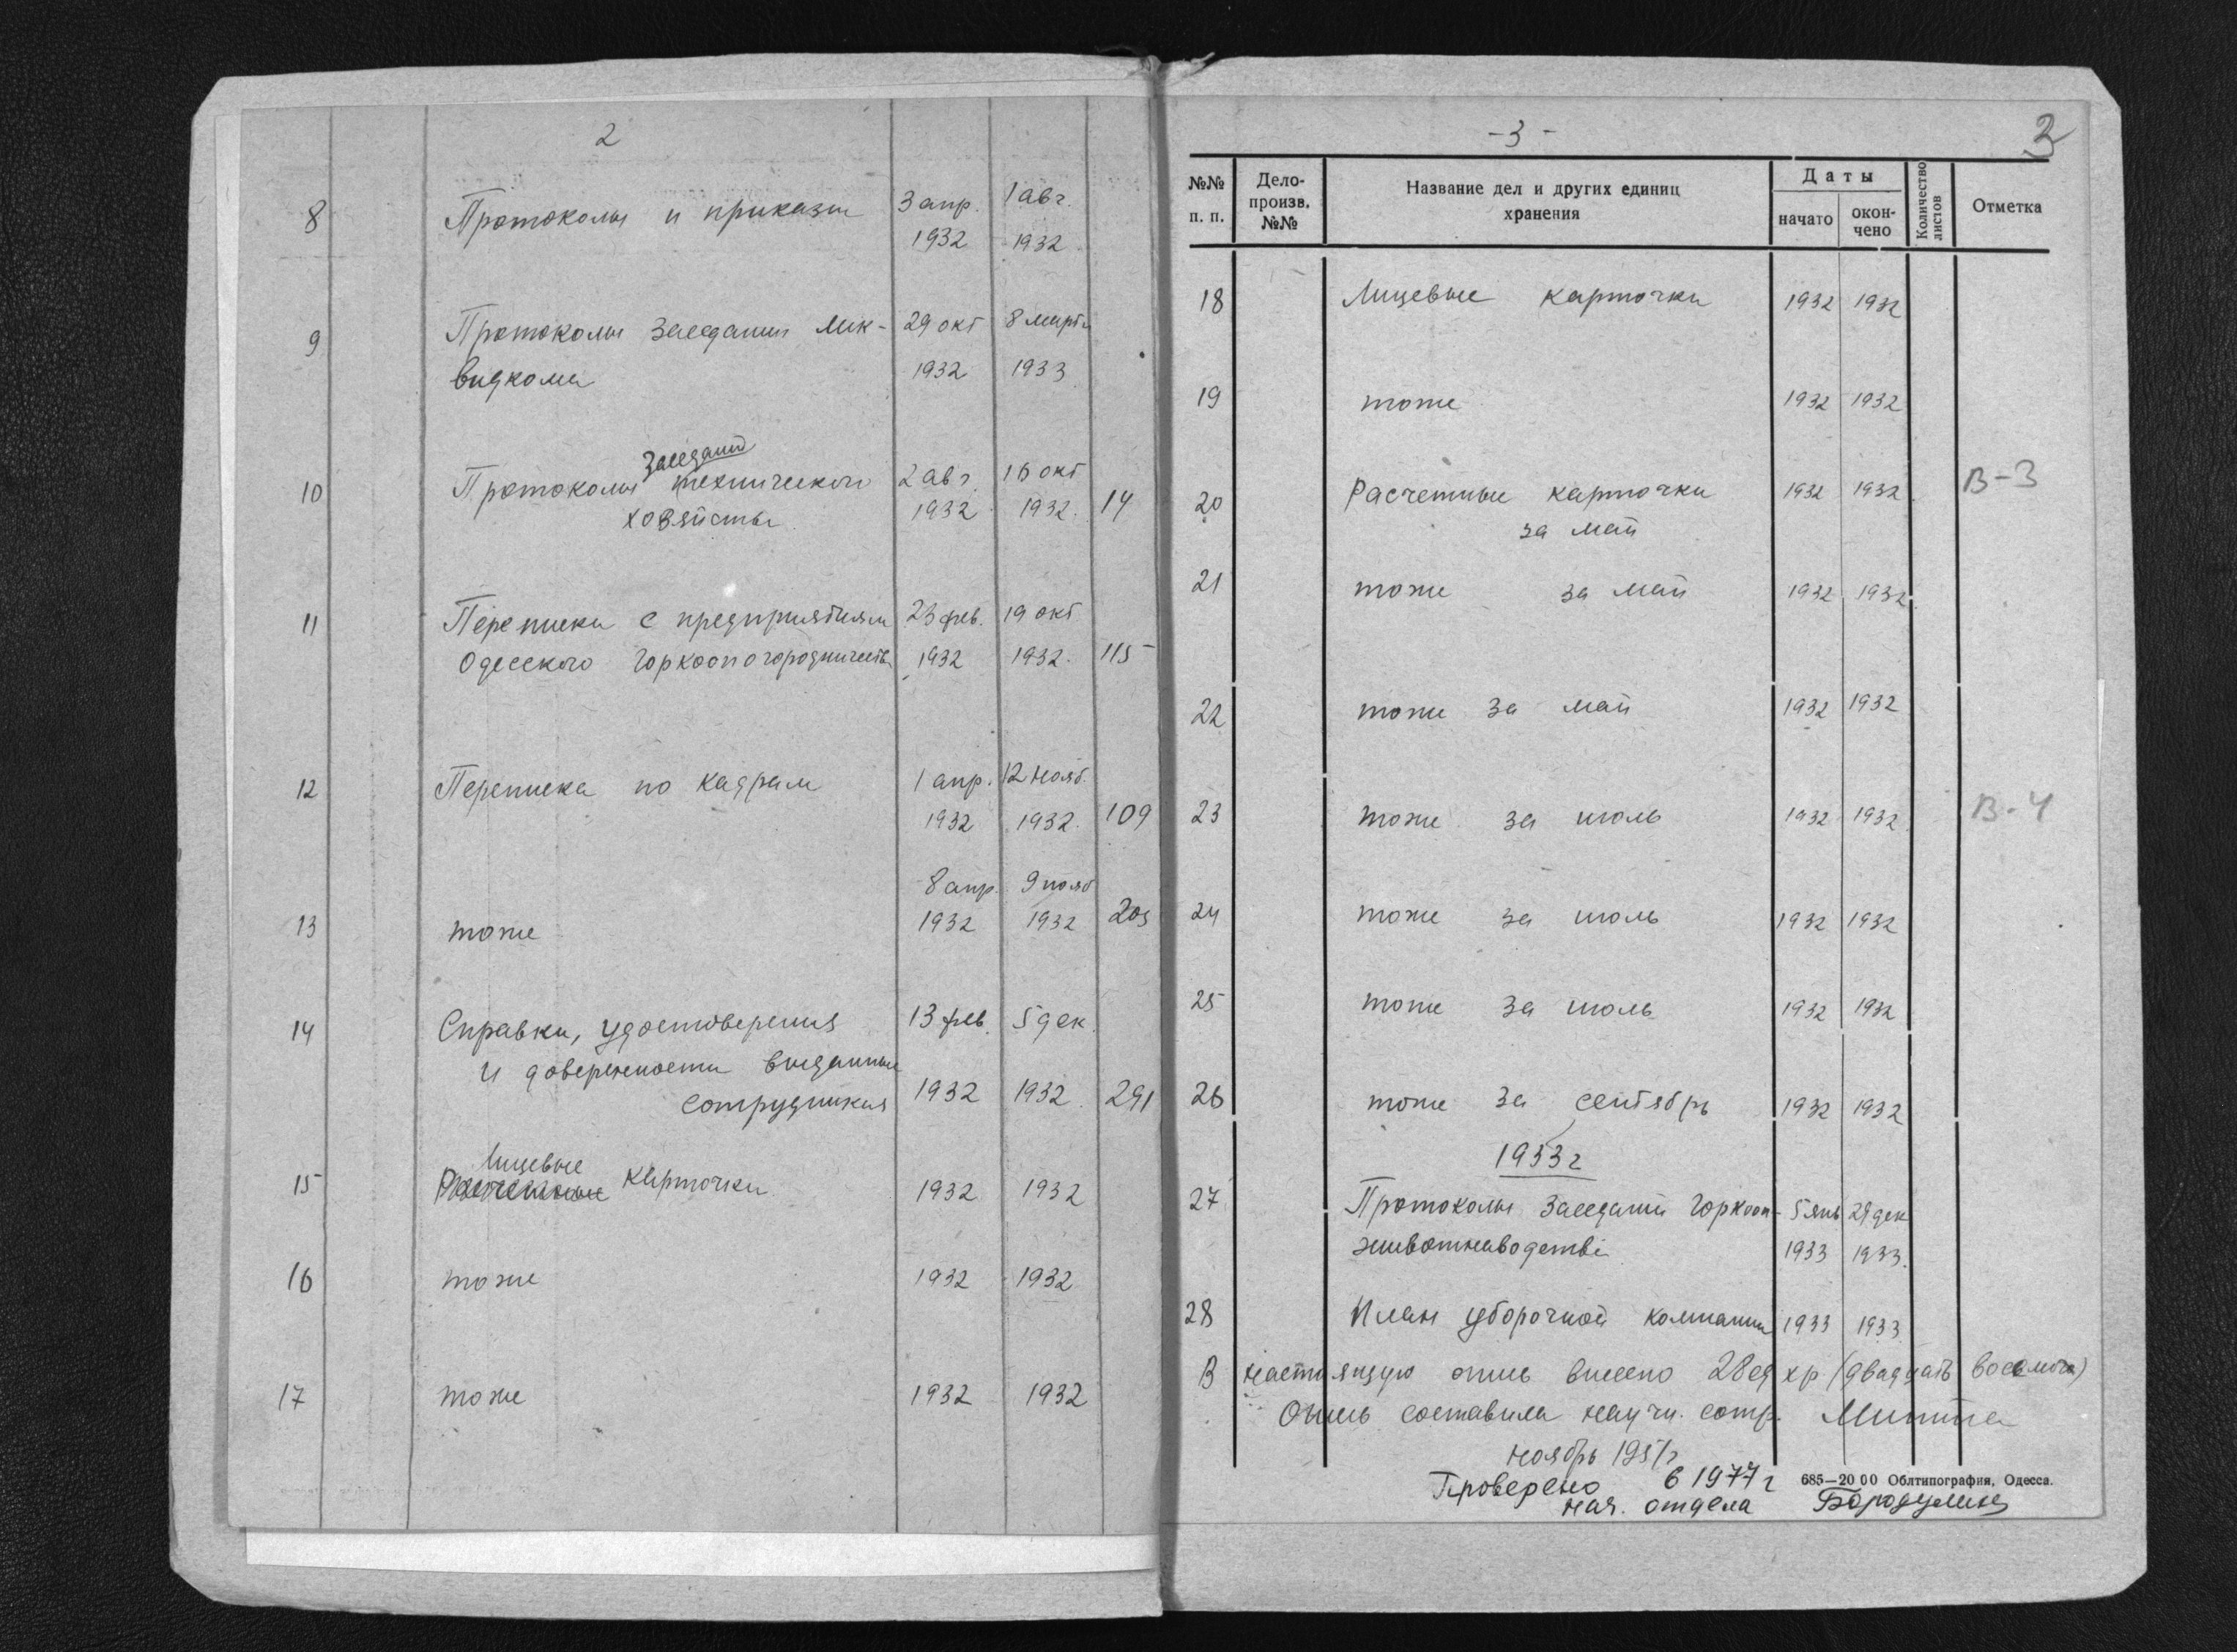 2
8 Протоколы и приказы 3 апр. 1 авг.
1932 1932
9 Протоколы заседания лик- 29 окт 8 марта
видкома 1932 1933
заседаний
10 Протоколы технического 2 авг. 16 окт
хозяйства 1932 1932. 14
11 Переписка с предприятиям 23 фев. 19 окт.
Одесского Горкоопогородничества 1932 1932. 115
12 Переписка по кадрам 1 апр. 12 нояб.
1932 1932. 109
8 апр. 9 нояб
13 тоже 1932 1932 205
14 Справки, удостоверения 13 фев. 5 дек.
и доверенности выданные
сотрудникам 1932 1932. 291
Лицевые
15 Расчетные карточки 1932 1932
16 тоже 1932 1932
17 тоже 1932 1932
-3- 3
№№ п. п.
Дело-
произв.
№№
Название дел и других единиц
хранения
Даты
начато
окон-
чено
Количество
листов
Отметка
18 Лицевые карточки 1932 1932
19 тоже 1932 1932
20 Расчетные карточки 1932 1932 В-3
за май
21 тоже за май 1932 1932
22 тоже за май 1932 1932
23 тоже за июль 1932 1932 В-4
24 тоже за июль 1932 1932
25 тоже за июль 1932 1932
26 тоже за сентябрь 1932 1932
1933 г
27 Протоколы заседаний Горкооп- 5 янв 29 дек
животноводства 1933 1933.
28 План уборочной компании 1933 1933.
В настоящую опись внесено 28 ед хр (двадцать восемь)
Опись составила научн. сотр.
ноябрь 1951 г
Проверено в 1977 г
685—2000 Облтипография, Одесса.
нач. отдела Бородулина